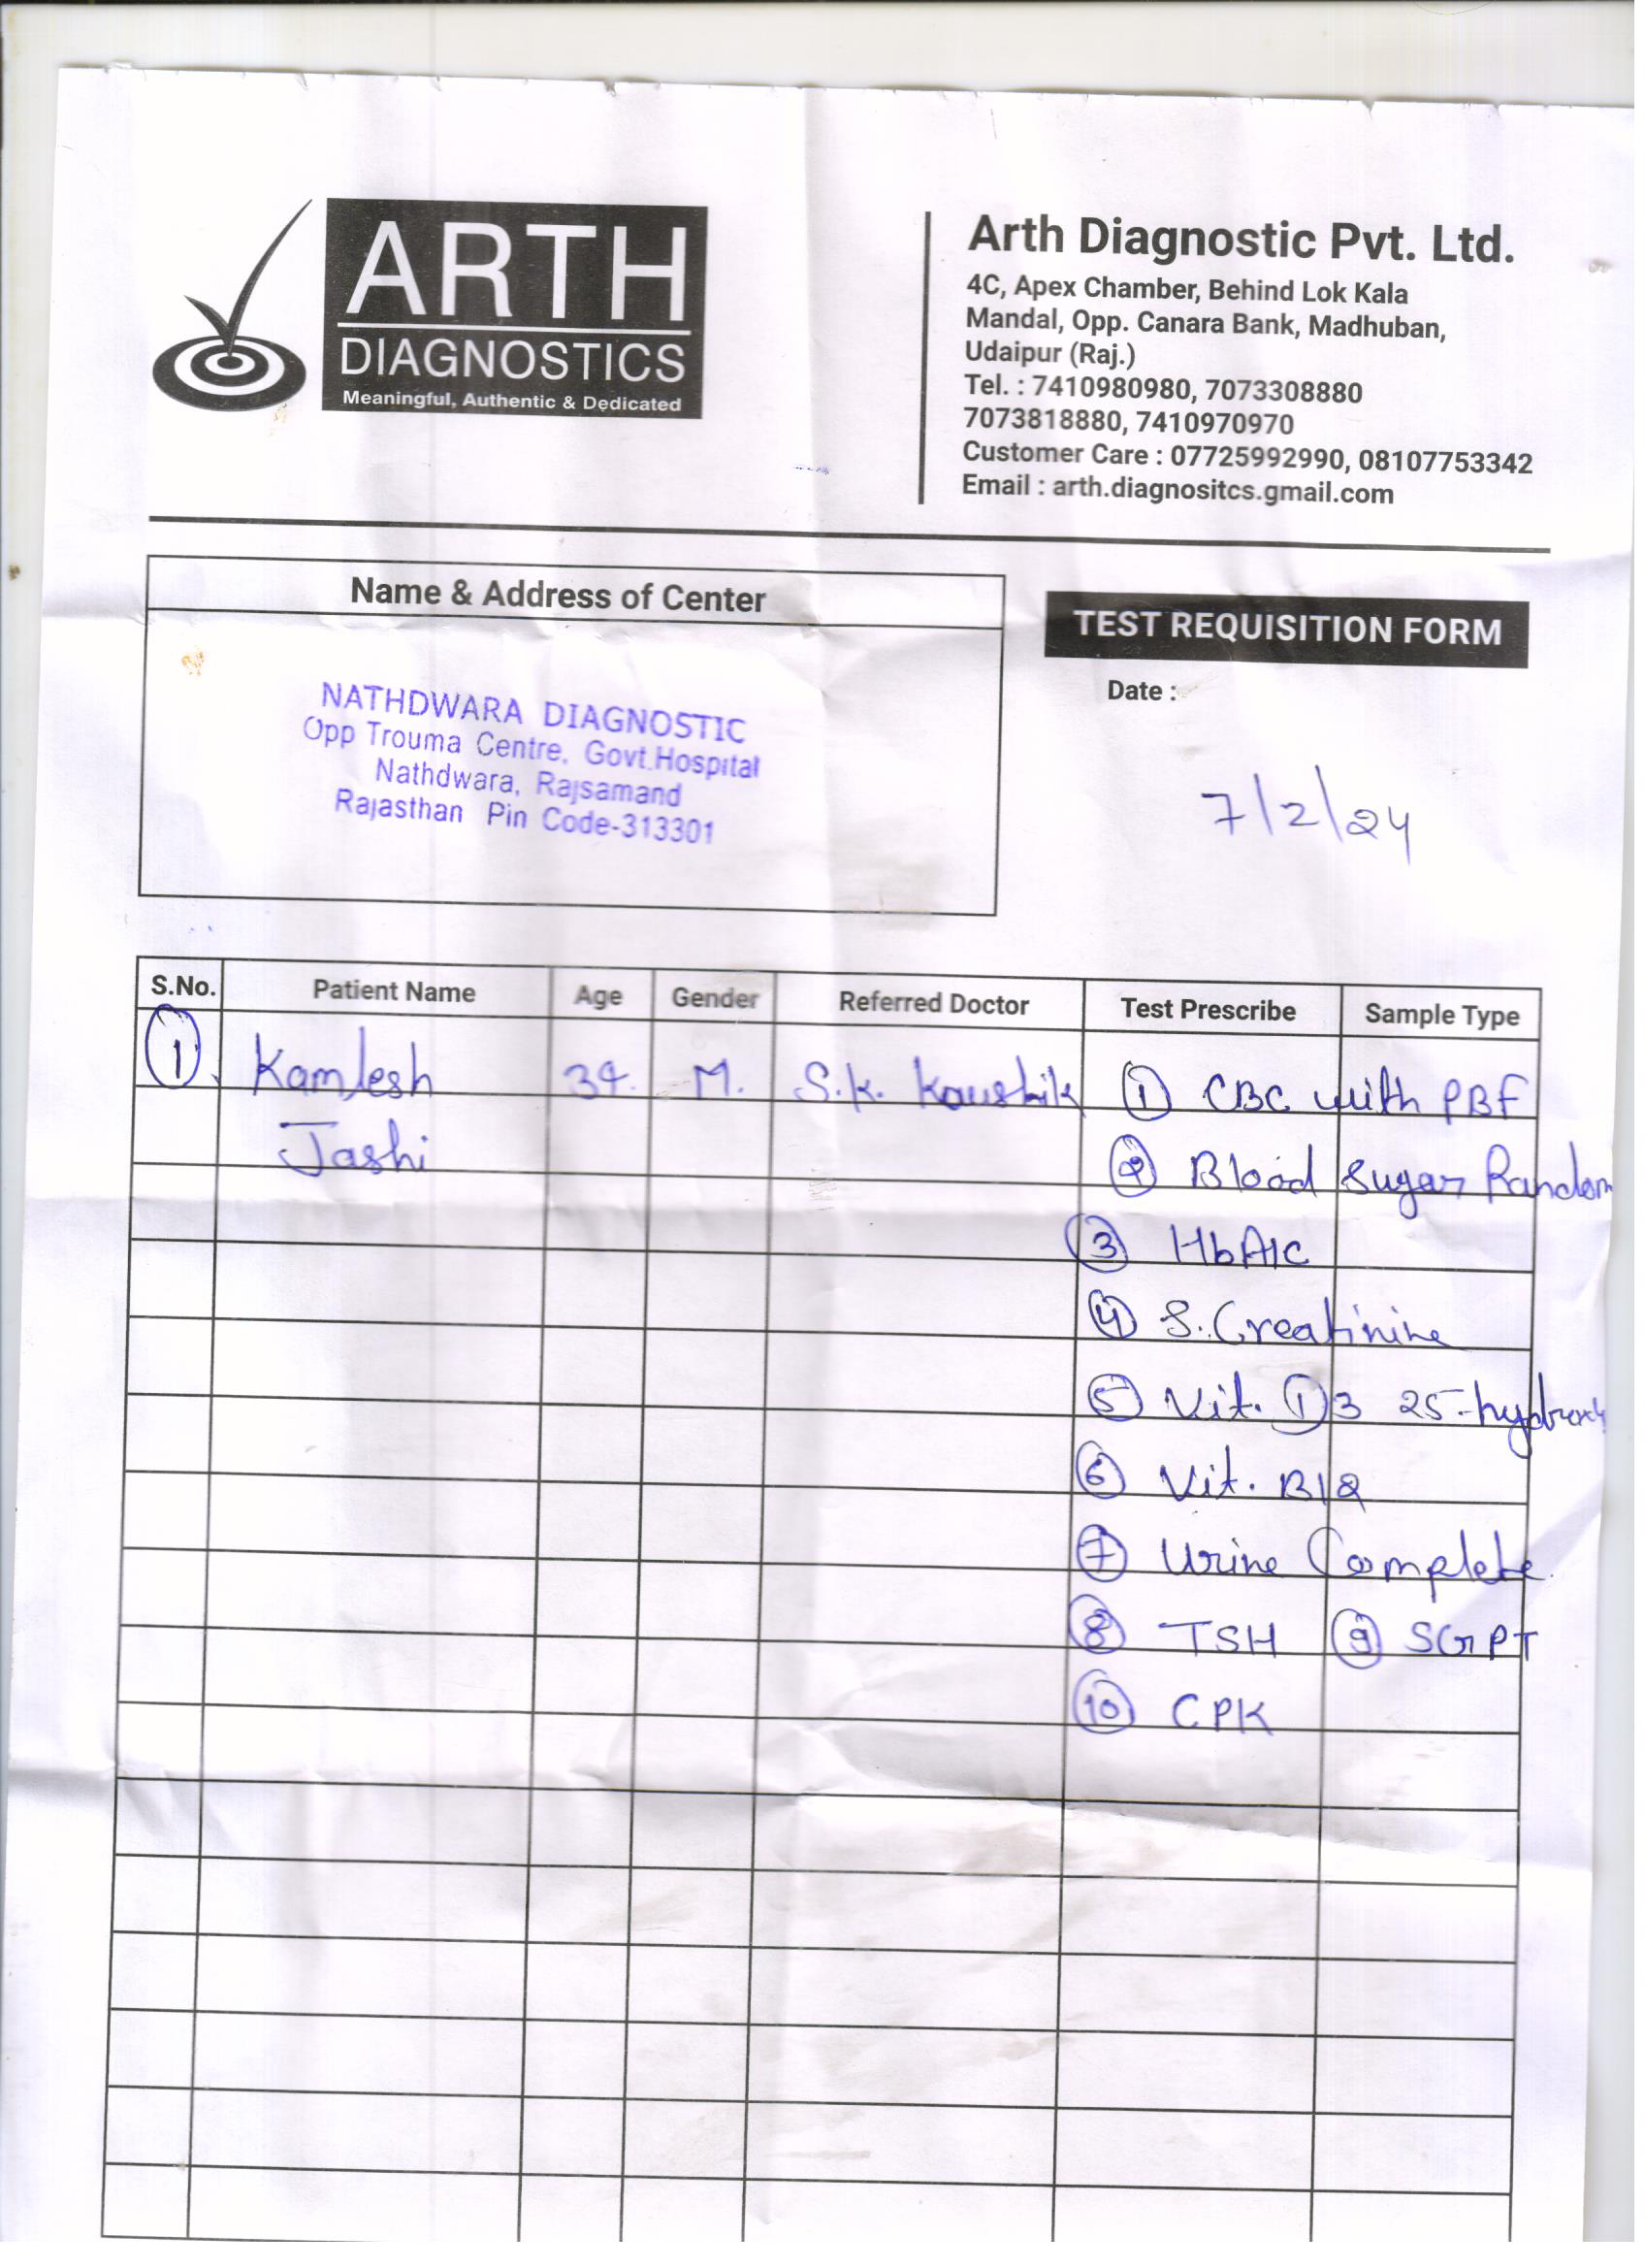 ARTH
DIAGNOSTICS
Meaningful, Authentic & Dedicated
Arth Diagnostic Pvt. Ltd.
4C, Apex Chamber, Behind Lok Kala
Mandal, Opp. Canara Bank, Madhuban,
Udaipur (Raj.)
Tel. : 7410980980, 7073308880
7073818880, 7410970970
Customer Care : 07725992990, 08107753342
Email : arth.diagnositcs.gmail.com
Name & Address of Center
NATHDWARA DIAGNOSTIC
Opp Trouma Centre, Govt.Hospital
Nathdwara, Rajsamand
Rajasthan Pin Code-313301
TEST REQUISITION FORM
Date :
7/2/24
S.No. Patient Name Age Gender Referred Doctor Test Prescribe Sample Type
1. Kamlesh 34. M. S.K. Kaushik 1 CBC with PBF
Jashi 2 Blood Sugar Random
3 HbA1c
4 S. Creatinine
5 Vit. D3 25-hydroxy
6 Vit. B12
7 Urine Complete.
8 TSH 9 SGPT
10 CPK